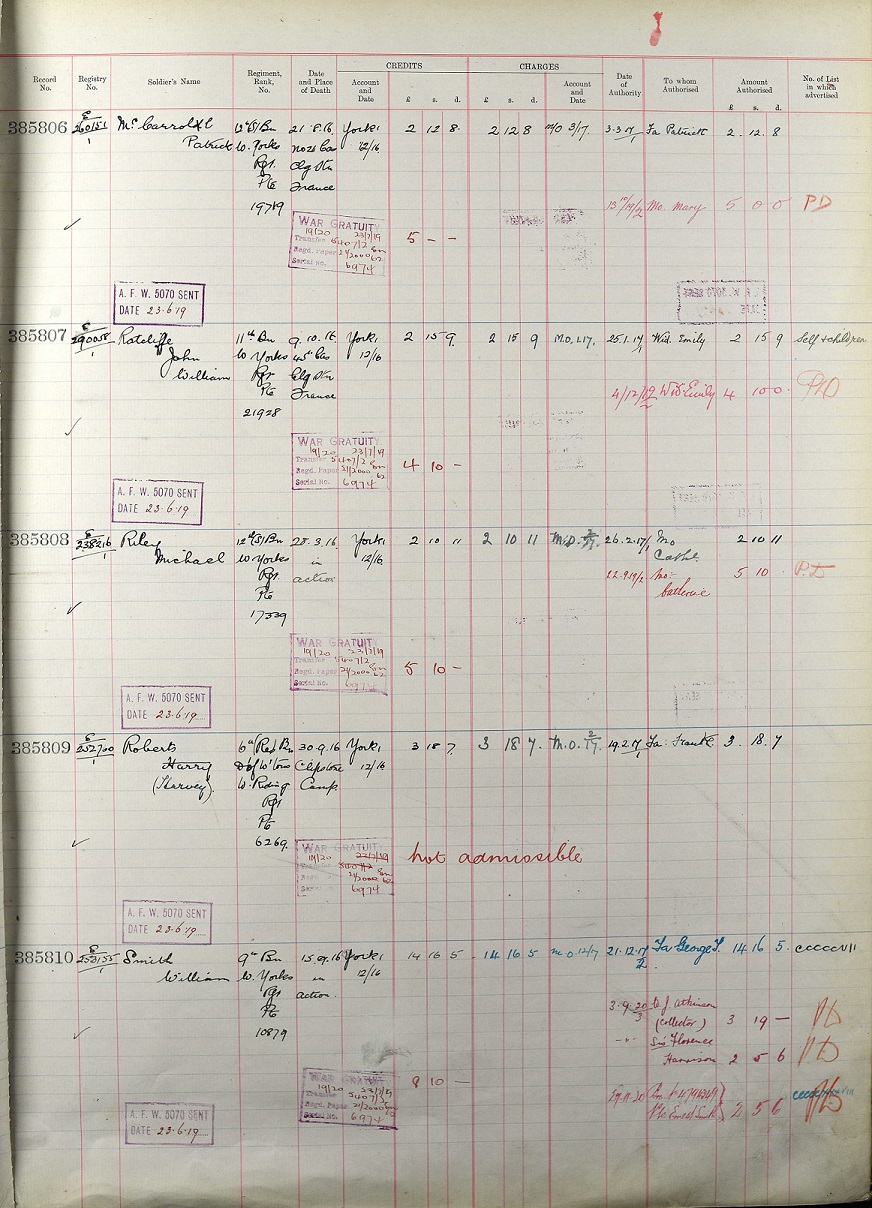 CREDITS CHARGES
Record No. Registry No. Soldier's Name Regiment, Rank, No. Date and Place of Death Account and Date £ s. d. £ s. d. Account and Date Date of Authority To whom Authorised Amount Authorised £ s. d. No. of List in which advertised
385806 E 260151/1 McCarroll Patrick
12th (S) Bn W. Yorks Rgt. Pte 19719
21.8.16 No 21 Cas Clg Stn France
York 12/16 2 12 8 2 12 8 M/O 3/17 3.3.17/1 Fa Patrick 2 . 12 . 8
Mo. Mary 5 0 0 PD
WAR GRATUITY
19/20 23/7/19
Transfer 5407/2
Regd. Paper 21/2000
Serial No. 6974
5 – –
A. F. W. 5070 SENT
DATE 23.6.19
385807 E 290058/1 Ratcliffe John William
11th Bn W Yorks Rgt Pte 21928
9.10.16 45th Cas Clg Stn France
York 12/16 2 15 9 2 15 9 M.O. 1.17. 25.1.17/1 Wid. Emily 2 15 9 Self & children
4/12/19/2 Wid Emily 4 10 0 PD
WAR GRATUITY
19/20 23/7/19
Transfer 5407/2
Regd. Paper 21/2000
Serial No. 6974
4 10 –
A. F. W. 5070 SENT
DATE 23.6.19
385808 E 238216/1 Riley Michael
12th (S) Bn W Yorks Rgt. Pte 17339
28.3.16 in action
York 12/16 2 10 11 2 10 11 M.O. 26.2.17/1 Mo Cath. 2 10 11
22.9.19/2 Mo: Catherine 5 10 . PD
WAR GRATUITY
19/20 23/7/19
Transfer 5407/2
Regd. Paper 21/2000
Serial No. 6974
5 10 –
A. F. W. 5070 SENT
DATE 23.6.19
385809 E 252700/1 Roberts Harry (Harvey)
6th (Res) Bn D of W's W. Riding Rgt Pte 6269
30.9.16 Clipstone Camp
York 12/16 3 18 7 3 18 7 M.O. 2/17 19.2.17/1 Fa: Frank 3 . 18 . 7
WAR GRATUITY
19/20 23/7/19
21/2000
6974
not admissible
A. F. W. 5070 SENT
DATE 23.6.19
385810 E 253155/1 Smith William
9th Bn W. Yorks Rgt Pte 10879
15.9.16 in action.
York 12/16 14 16 5 14 16 5 M.O. 12/17 21.12.17/2 Fa George T. 14 16 5
3.9.20/3 C J. Atkinson (Collector) 3 19 – PD
–"– Sis Florence Harrison 2 5 6 PD
2 5 6 PD
WAR GRATUITY
19/20 23/7/19
Transfer 5407/2
Regd. Paper 21/2000
Serial No. 6974
8 10 –
A. F. W. 5070 SENT
DATE 23.6.19